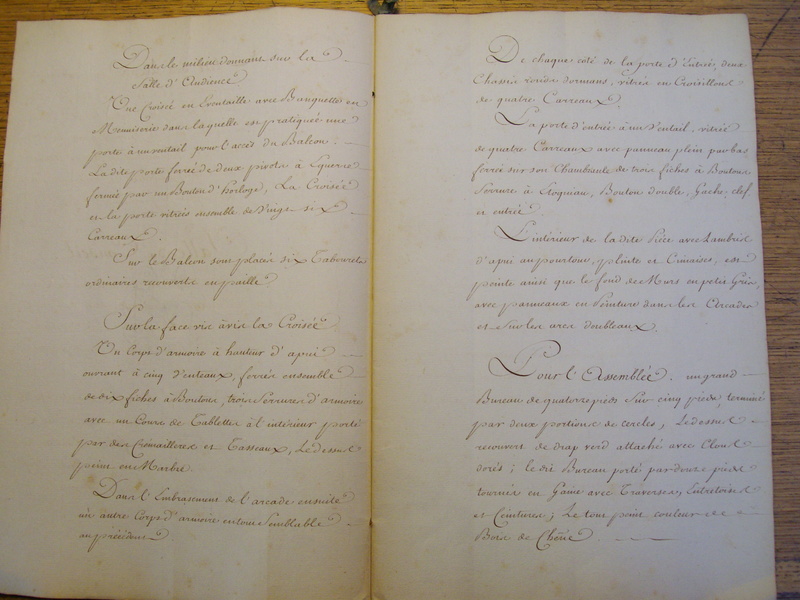 Dans le milieu donnant sur la
Salle d'Audience
Une Croisée en Eventaille avec Banquette en
Menuiserie dans laquelle est pratiquée une
porte à un ventail pour l'accès du Balcon.
La dite porte ferrée de deux pivots à Equerre
fermée par un Bouton d'horloge, La Croisée
et la porte vitrées ensemble de Vingt six
Carreaux.
Sur le Balcon sont placés six Tabourets
ordinaires recouverts en paille
Sur la face vis à vis la Croisée
Un Corps d'armoire à hauteur d'apui
ouvrant à cinq Venteaux, ferrés ensemble
de dix fiches à Boutons, trois Serrures d'armoire
avec un Cours de Tablettes à l'intérieur porté
par des Crémailleres et Tasseaux, Le dessus
peint en Marbre.
Dans l'Embrasement de l'arcade ensuite
un autre Corps d'armoire en tout Semblable
au précédent
De chaque côté de la porte d'Entrée, deux
Chassis Louies dormans, vitrés en Croisillons
de quatre Carreaux.
La porte d'entrée à un Ventail, vitrée
de quatre Carreaux avec panneau plein par bas
ferrée sur son Chambranle de trois fiches à Boutons
Serrure à Bouton double, Gache, clef
et entrée
L'intérieur de la dite Pièce avec Lambris
d'apui au pourtour, plinte et Cimaises, est
peinte ainsi que le fond de Murs en petit Gris,
avec panneaux en Peinture dans les Arcades
et Sur les arcs doubleaux.
Pour l'Assemblée. un grand
Bureau de quatorze pieds Sur cinq pieds, terminé
par deux portions de cercles, Le dessus
recouvert de drap verd attaché avec Clous
dorés; le dit Bureau porté par douze pieds
tournés en Gaine avec Traverses, Entretoises
et Ceintures; Le tout peint couleur de
Bois de Chêne